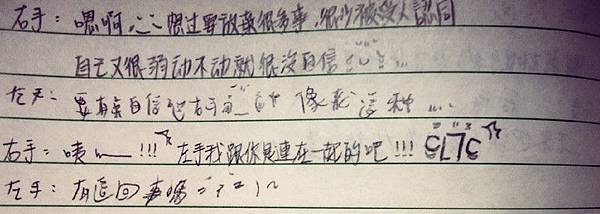 右手：嗯啊，…想过要放棄很多事，很少被人認同
自己又很弱动不动就很沒自信…
左手：要有点自信吧右手 像我這种….
右手：咦~~!!! 左手我跟你是連在一起的吧!!!
左手：有這回事嗎=3=)~